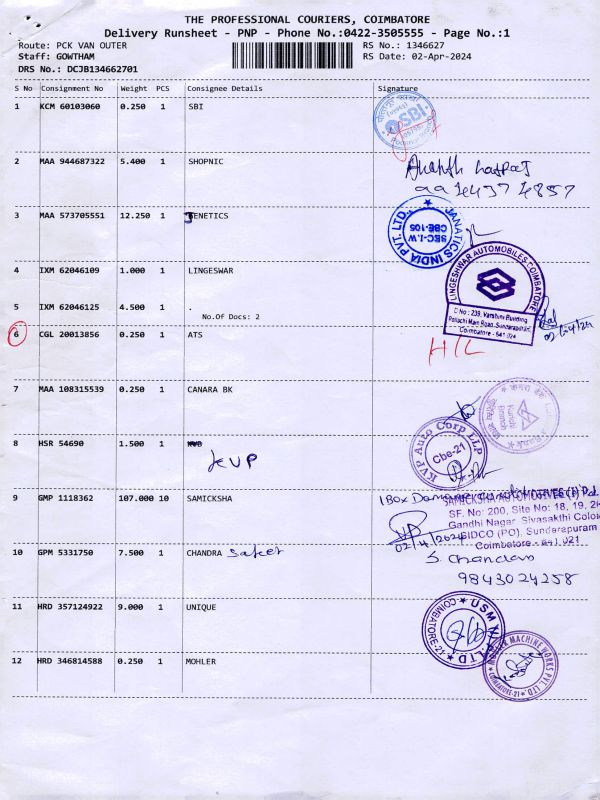 THE PROFESSIONAL COURIERS, COIMBATORE
Delivery Runsheet - PNP - Phone No.:0422-3505555 - Page No.:1
Route: PCK VAN OUTER
RS No.: 1346627
Staff: GOWTHAM
RS Date: 02-Apr-2024
DRS No.: DCJB134662701
S No Consignment No Weight PCS Consignee Details Signature
1 KCM 60103060 0.250 1 SBI
SBI
2 MAA 944687322 5.400 1 SHOPNIC
3 MAA 573705551 12.250 1 JENETICS
JANATICS INDIA PVT. LTD.
SEC-I.W
CBE-105
4 IXM 62046109 1.000 1 LINGESWAR
LINGESHWAR AUTOMOBILES COIMBATORE
D No : 239, Varshni Building
Pollachi Main Road, Sundarapuram,
Coimbatore - 641 024
5 IXM 62046125 4.500 1 .
No.Of Docs: 2
02/04/24
6 CGL 20013856 0.250 1 ATS
7 MAA 108315539 1 CANARA BK
0.250
8 HSR 54690 1.500 1 KVP
KVP
KVP Auto Corp LLP
Cbe-21
9 GMP 1118362 107.000 10 SAMICKSHA
1 Box
SAMICKSHA AUTOMOTIVES (P)
SF. No: 200, Site No: 18, 19,
Gandhi Nagar, Sivasakthi
SIDCO (PO), Sundarapuram
Coimbatore - 641 021
02/4/2024
10 GPM 5331750 7.500 1 CHANDRA
S. Chandran
9843024258
11 HRD 357124922 9.000 1 UNIQUE
USM
COIMBATORE-21
12 HRD 346814588 0.250 1 MOHLER
MACHINE WORKS PVT. LTD
COIMBATORE-21